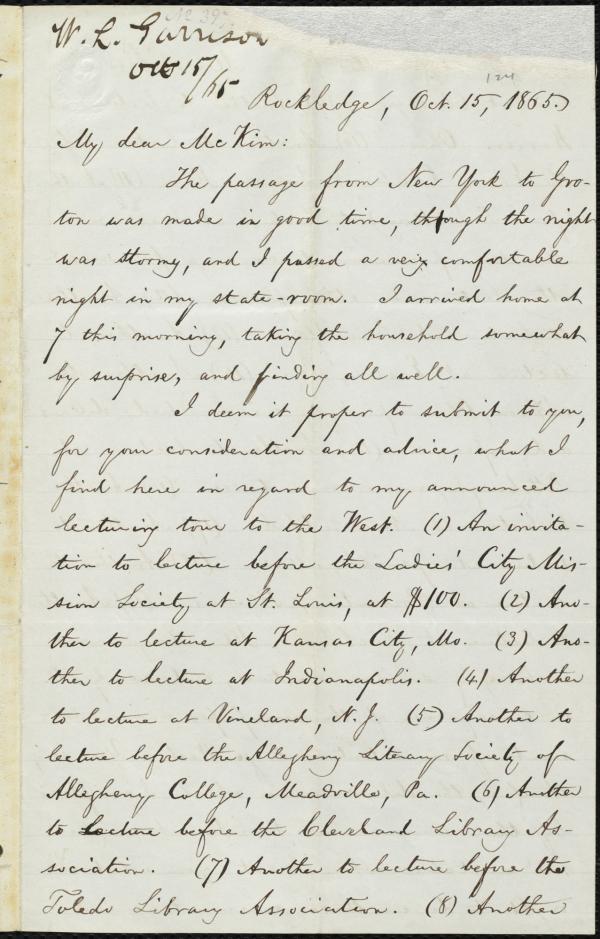 W. L. Garrison
Oct 15/65
124
Rockledge, Oct. 15, 1865.
My dear McKim:
The passage from New York to Gro-
ton was made in good time, though the night
was stormy, and I passed a very comfortable
night in my state-room. I arrived home at
7 this morning, taking the household somewhat
by surprise, and finding all well.
I deem it proper to submit to you,
for your consideration and advice, what I
find here in regard to my announced
lecturing tour to the West. (1) An invita-
tion to lecture before the Ladies' City Mis-
sion Society at St. Louis, at $100. (2) Ano-
ther to lecture at Kansas City, Mo. (3) Ano-
ther to lecture at Indianapolis. (4) Another
to lecture at Vineland, N.J. (5) Another to
lecture before the Allegheny Literary Society of
Allegheny College, Meadville, Pa. (6) Another
to lecture before the Cleveland Library As-
sociation. (7) Another to lecture before the
Toledo Library Association. (8) Another